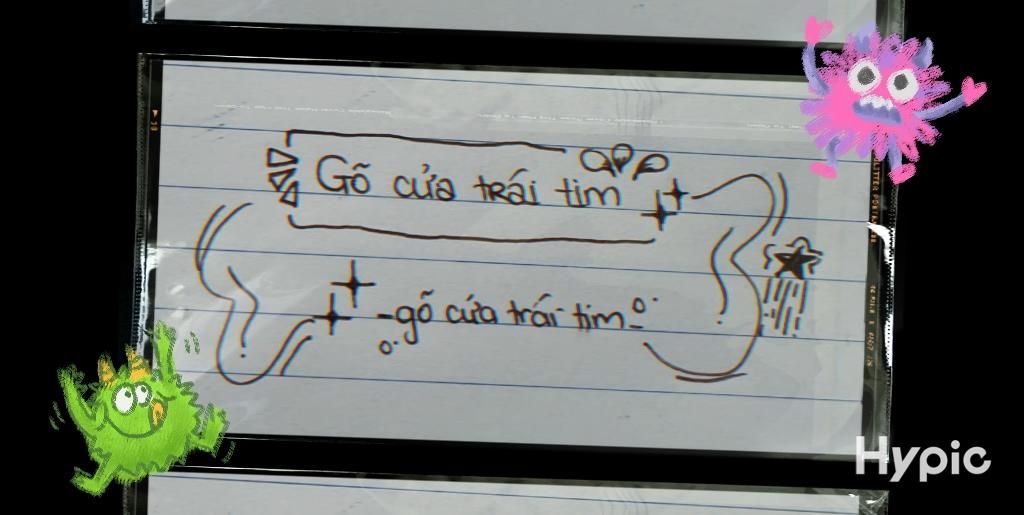 Gõ cửa trái tim
-gõ cứa trái tim-
Hypic